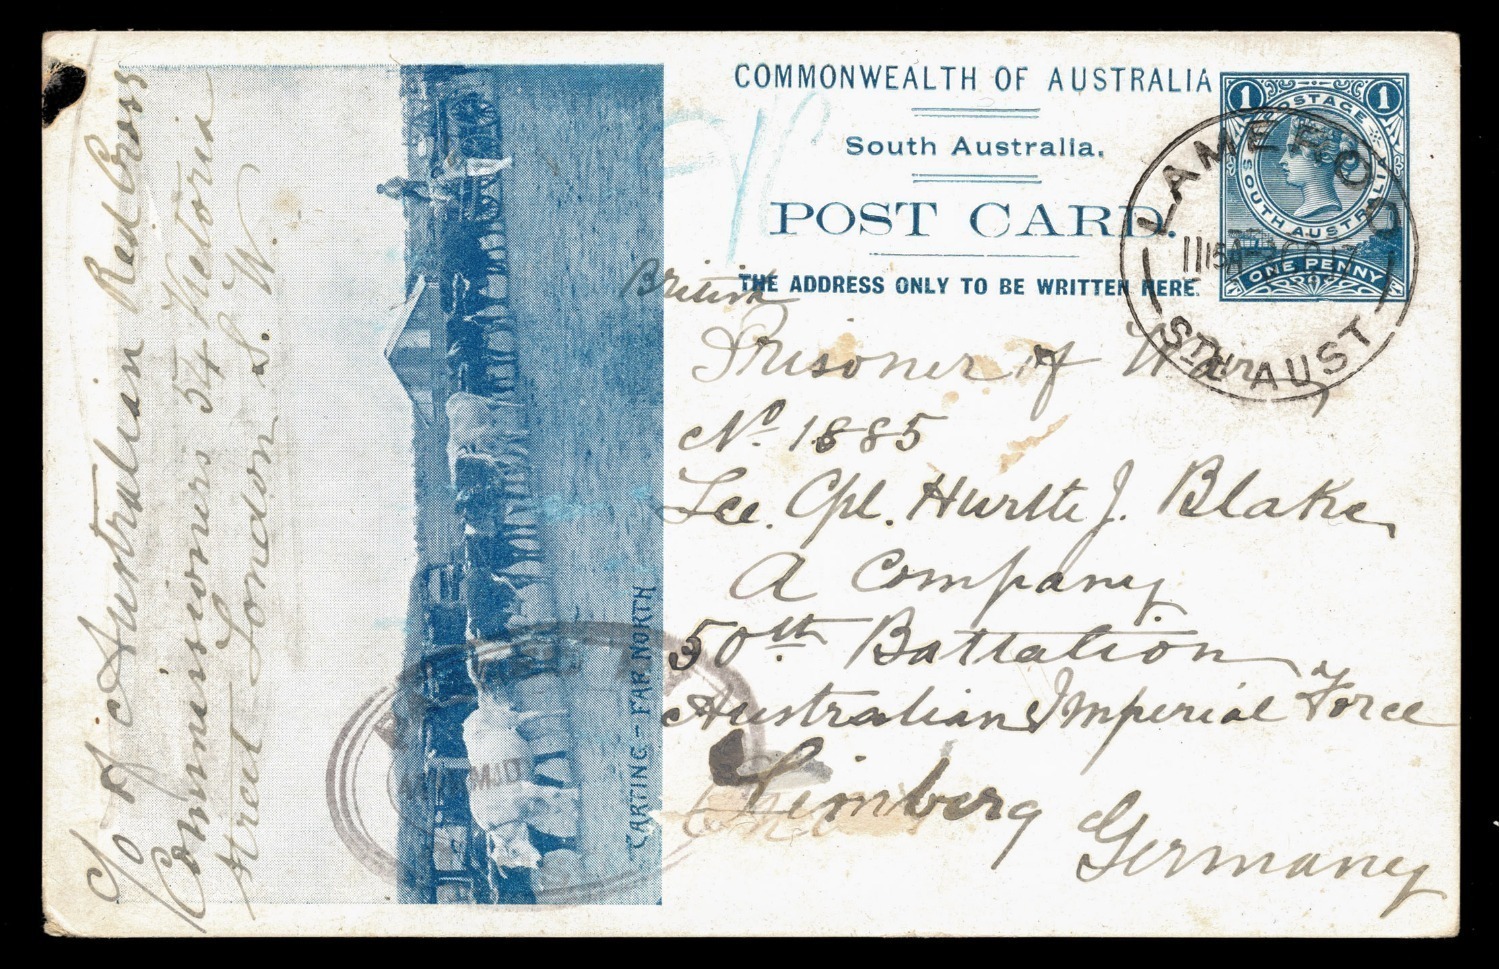 COMMONWEALTH OF AUSTRALIA
South Australia.
POST CARD.
THE ADDRESS ONLY TO BE WRITTEN HERE.
1 1
POSTAGE
SOUTH AUSTRALIA
ONE PENNY
LAMEROO
STH AUST
British
Prisoner of War,
No. 1885
Lce. Cpl. Hurtle J. Blake
A Company
50th Battalion
Australian Imperial Force
Limberg
Germany
c/o of Australian Red Cross
Commissioners 54 Victoria
Street London S.W.
CARTING - FAR NORTH